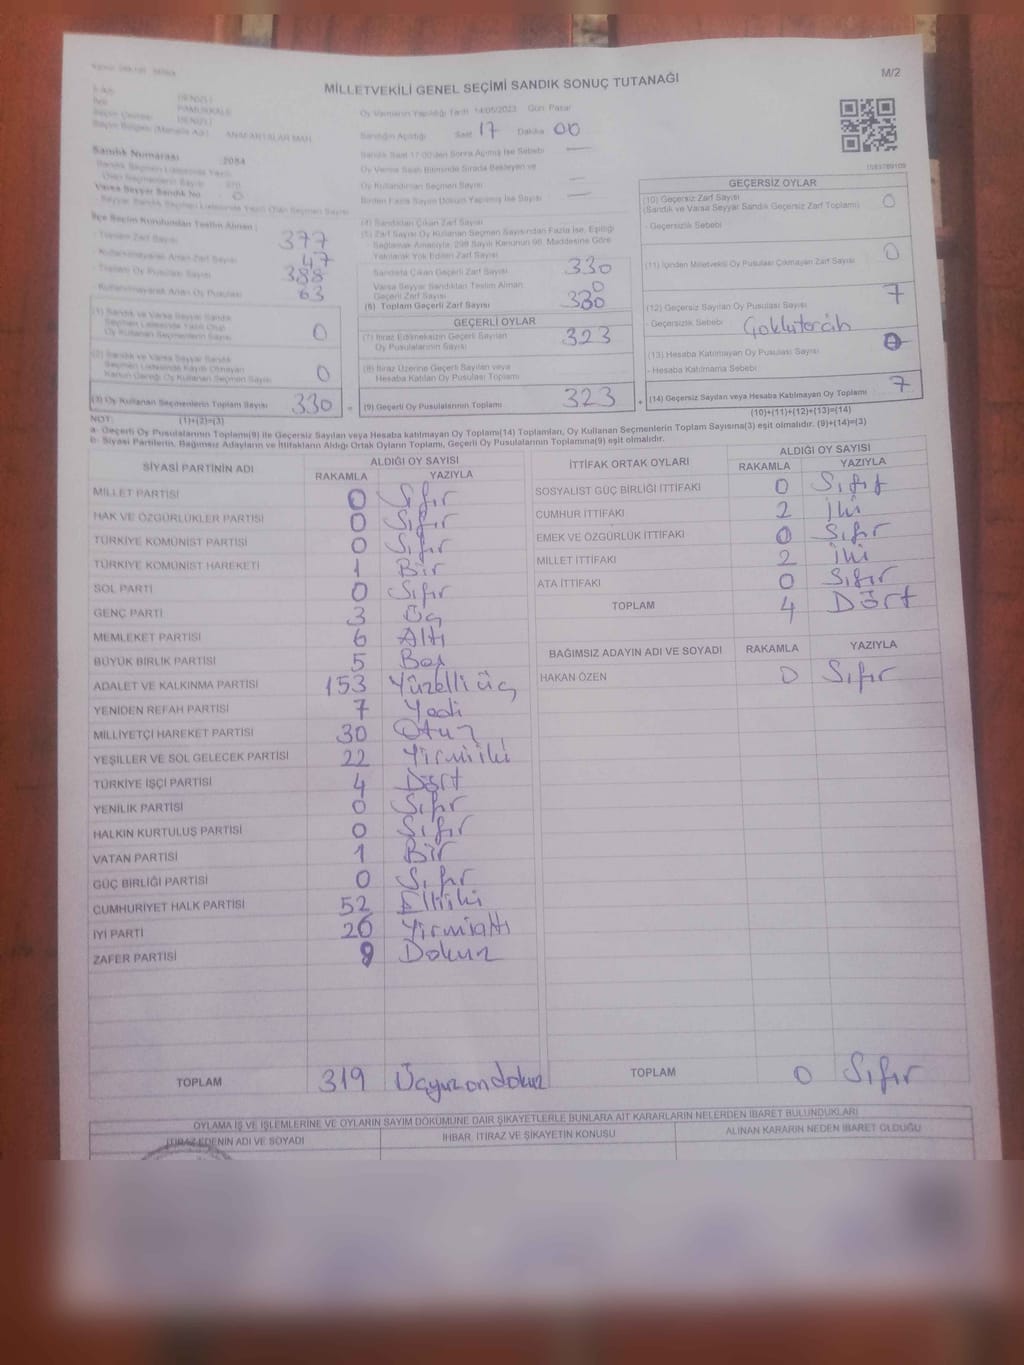 M/2
MİLLETVEKİLİ GENEL SEÇİMİ SANDIK SONUÇ TUTANAĞI
İli DENİZLİ
PAMUKKALE
DENİZLİ
ANAFARTALAR MAH.
Oy Vermenin Yapıldığı Tarih 14/05/2023 Gün Pazar
Sandığın Açıldığı Saat 17 Dakika 00
Sandık Saat 17:00'den Sonra Açılmış İse Sebebi —
Oy Verme Saati Bitiminde Sırada Bekleyen ve
Oy Kullandırılan Seçmen Sayısı —
Birden Fazla Sayım Döküm Yapılmış İse Sayısı —
Sandık Numarası 2084
Varsa Seyyar Sandık No 0
İlçe Seçim Kurulundan Teslim Alınan:
- Toplam Zarf Sayısı 377
- Kullanılmayarak Artan Zarf Sayısı 47
- Toplam Oy Pusulası Sayısı 388
- Kullanılmayarak Artan Oy Pusulası 63
(1) Sandık ve Varsa Seyyar Sandık
Seçmen Listesinde Yazılı Olup
Oy Kullanan Seçmenlerin Sayısı 0
(2) Sandık ve Varsa Seyyar Sandık
Seçmen Listesinde Kaydı Olmayan
Kanun Gereği Oy Kullanan Seçmen Sayısı 0
(3) Oy Kullanan Seçmenlerin Toplam Sayısı 330
(4) Sandıktan Çıkan Zarf Sayısı
(5) Zarf Sayısı Oy Kullanan Seçmen Sayısından Fazla İse, Eşitliği
Sağlamak Amacıyla, 298 Sayılı Kanunun 98. Maddesine Göre
Yakılarak Yok Edilen Zarf Sayısı
Sandıkta Çıkan Geçerli Zarf Sayısı 330
Varsa Seyyar Sandıktan Teslim Alınan
Geçerli Zarf Sayısı 0
(6) Toplam Geçerli Zarf Sayısı 330
GEÇERLİ OYLAR
(7) İtiraz Edilmeksizin Geçerli Sayılan
Oy Pusulalarının Sayısı 323
(8) İtiraz Üzerine Geçerli Sayılan veya
Hesaba Katılan Oy Pusulası Toplamı
(9) Geçerli Oy Pusulalarının Toplamı 323
1583789109
GEÇERSİZ OYLAR
(10) Geçersiz Zarf Sayısı
(Sandık ve Varsa Seyyar Sandık Geçersiz Zarf Toplamı) 0
- Geçersizlik Sebebi
(11) İçinden Milletvekili Oy Pusulası Çıkmayan Zarf Sayısı 0
(12) Geçersiz Sayılan Oy Pusulası Sayısı 7
- Geçersizlik Sebebi
(13) Hesaba Katılmayan Oy Pusulası Sayısı 0
- Hesaba Katılmama Sebebi
(14) Geçersiz Sayılan veya Hesaba Katılmayan Oy Toplamı 7
NOT: (1)+(2)=(3) (10)+(11)+(12)+(13)=(14)
a- Geçerli Oy Pusulalarının Toplamı(9) ile Geçersiz Sayılan veya Hesaba katılmayan Oy Toplamı(14) Toplamları, Oy Kullanan Seçmenlerin Toplam Sayısına(3) eşit olmalıdır. (9)+(14)=(3)
b- Siyasi Partilerin, Bağımsız Adayların ve İttifakların Aldığı Ortak Oyların Toplamı, Geçerli Oy Pusulalarının Toplamına(9) eşit olmalıdır.
SİYASİ PARTİNİN ADI ALDIĞI OY SAYISI
RAKAMLA YAZIYLA
MİLLET PARTİSİ 0 Sıfır
HAK VE ÖZGÜRLÜKLER PARTİSİ 0 Sıfır
TÜRKİYE KOMÜNİST PARTİSİ 0 Sıfır
TÜRKİYE KOMÜNİST HAREKETİ 1 Bir
SOL PARTİ 0 Sıfır
GENÇ PARTİ 3 Üç
MEMLEKET PARTİSİ 6 Altı
BÜYÜK BİRLİK PARTİSİ 5 Beş
ADALET VE KALKINMA PARTİSİ 153 Yüzelli üç
YENİDEN REFAH PARTİSİ 7 Yedi
MİLLİYETÇİ HAREKET PARTİSİ 30 Otuz
YEŞİLLER VE SOL GELECEK PARTİSİ 22 Yirmiiki
TÜRKİYE İŞÇİ PARTİSİ 4 Dört
YENİLİK PARTİSİ 0 Sıfır
HALKIN KURTULUŞ PARTİSİ 0 Sıfır
VATAN PARTİSİ 1 Bir
GÜÇ BİRLİĞİ PARTİSİ 0 Sıfır
CUMHURİYET HALK PARTİSİ 52 Elliiki
İYİ PARTİ 26 Yirmialtı
ZAFER PARTİSİ 9 Dokuz
TOPLAM 319 Üçyüzondokuz
İTTİFAK ORTAK OYLARI ALDIĞI OY SAYISI
RAKAMLA YAZIYLA
SOSYALİST GÜÇ BİRLİĞİ İTTİFAKI 0 Sıfır
CUMHUR İTTİFAKI 2 İki
EMEK VE ÖZGÜRLÜK İTTİFAKI 0 Sıfır
MİLLET İTTİFAKI 2 İki
ATA İTTİFAKI 0 Sıfır
TOPLAM 4 Dört
BAĞIMSIZ ADAYIN ADI VE SOYADI RAKAMLA YAZIYLA
HAKAN ÖZEN 0 Sıfır
TOPLAM 0 Sıfır
OYLAMA İŞ VE İŞLEMLERİNE VE OYLARIN SAYIM DÖKÜMÜNE DAİR ŞİKAYETLERLE BUNLARA AİT KARARLARIN NELERDEN İBARET BULUNDUKLARI
İTİRAZ EDENİN ADI VE SOYADI İHBAR, İTİRAZ VE ŞİKAYETİN KONUSU ALINAN KARARIN NEDEN İBARET OLDUĞU